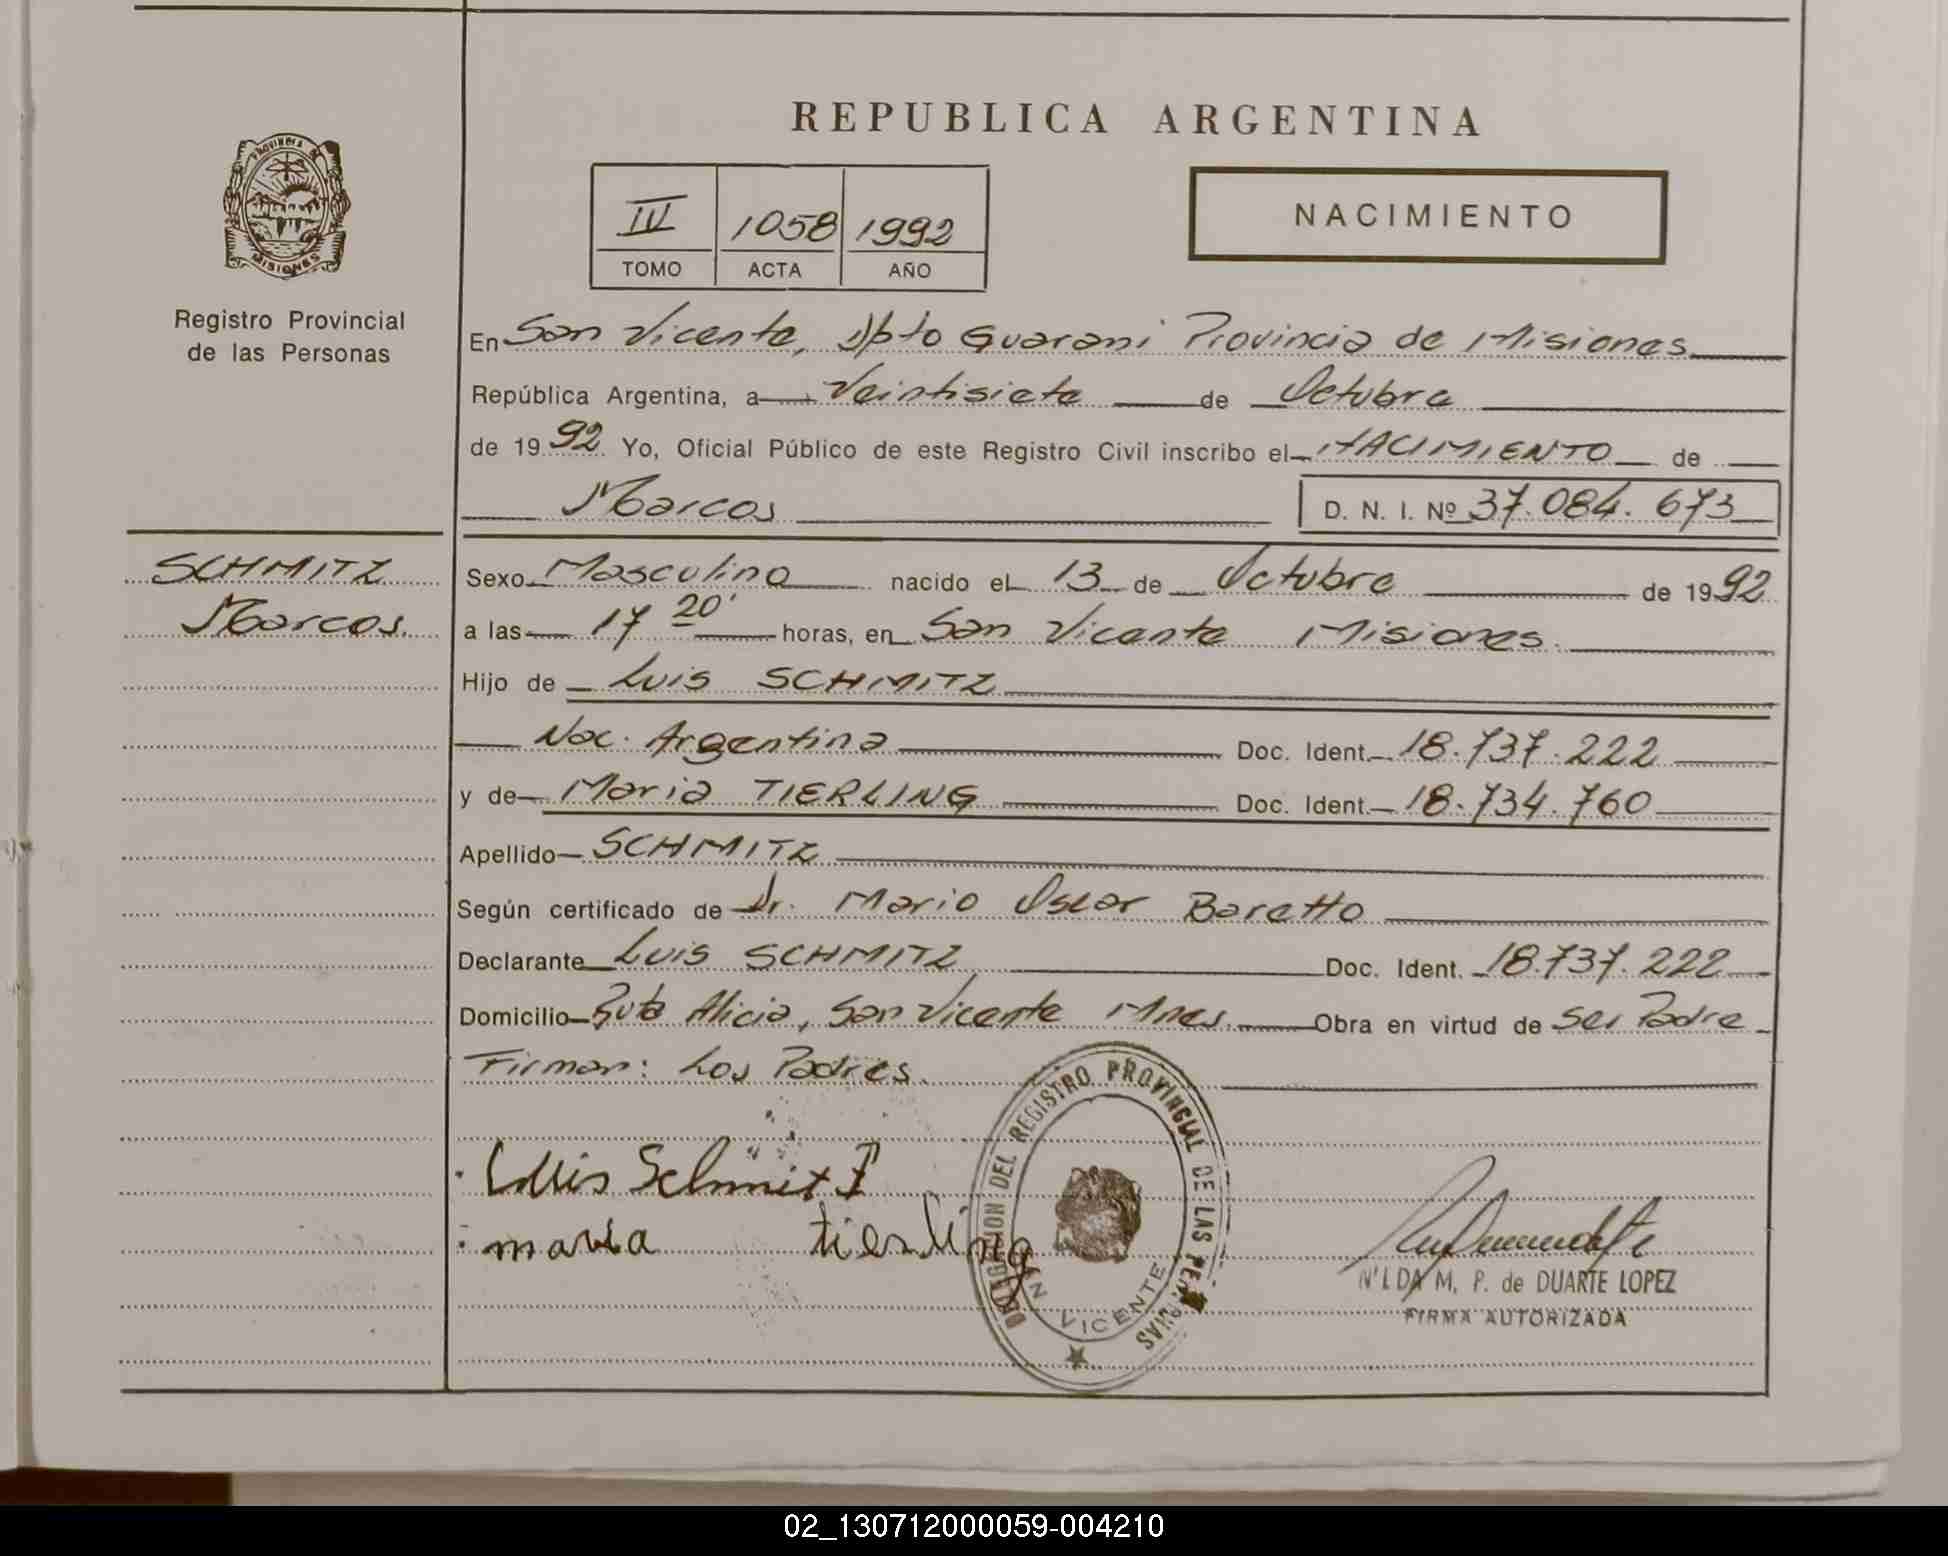 REPUBLICA ARGENTINA
PROVINCIA DE
MISIONES
Registro Provincial
de las Personas
IV 1058 1992
TOMO ACTA AÑO
NACIMIENTO
En San Vicente, Dpto Guarani Provincia de Misiones
República Argentina, a Veintisiete de Octubre
de 1992 Yo, Oficial Público de este Registro Civil inscribo el NACIMIENTO de
Marcos D. N. I. Nº 37.084.673
SCHMITZ
Marcos.
Sexo Masculino nacido el 13 de Octubre de 1992
a las 17 20' horas, en San Vicente Misiones.
Hijo de Luis SCHMITZ
Nac. Argentina Doc. Ident. 18.737.222
y de Maria TIERLING Doc. Ident. 18.734.760
Apellido SCHMITZ
Según certificado de Dr. Mario Oscar Baretto
Declarante Luis SCHMITZ Doc. Ident. 18.737.222
Domicilio Ruta Alicia, San Vicente Mnes. Obra en virtud de ser Padre
Firman: Los Padres.
Luis Schmitz
maria tierling
DELEGACION DEL REGISTRO PROVINCIAL DE LAS PERSONAS
SAN VICENTE
NILDA M. P. de DUARTE LOPEZ
FIRMA AUTORIZADA
02_130712000059-004210